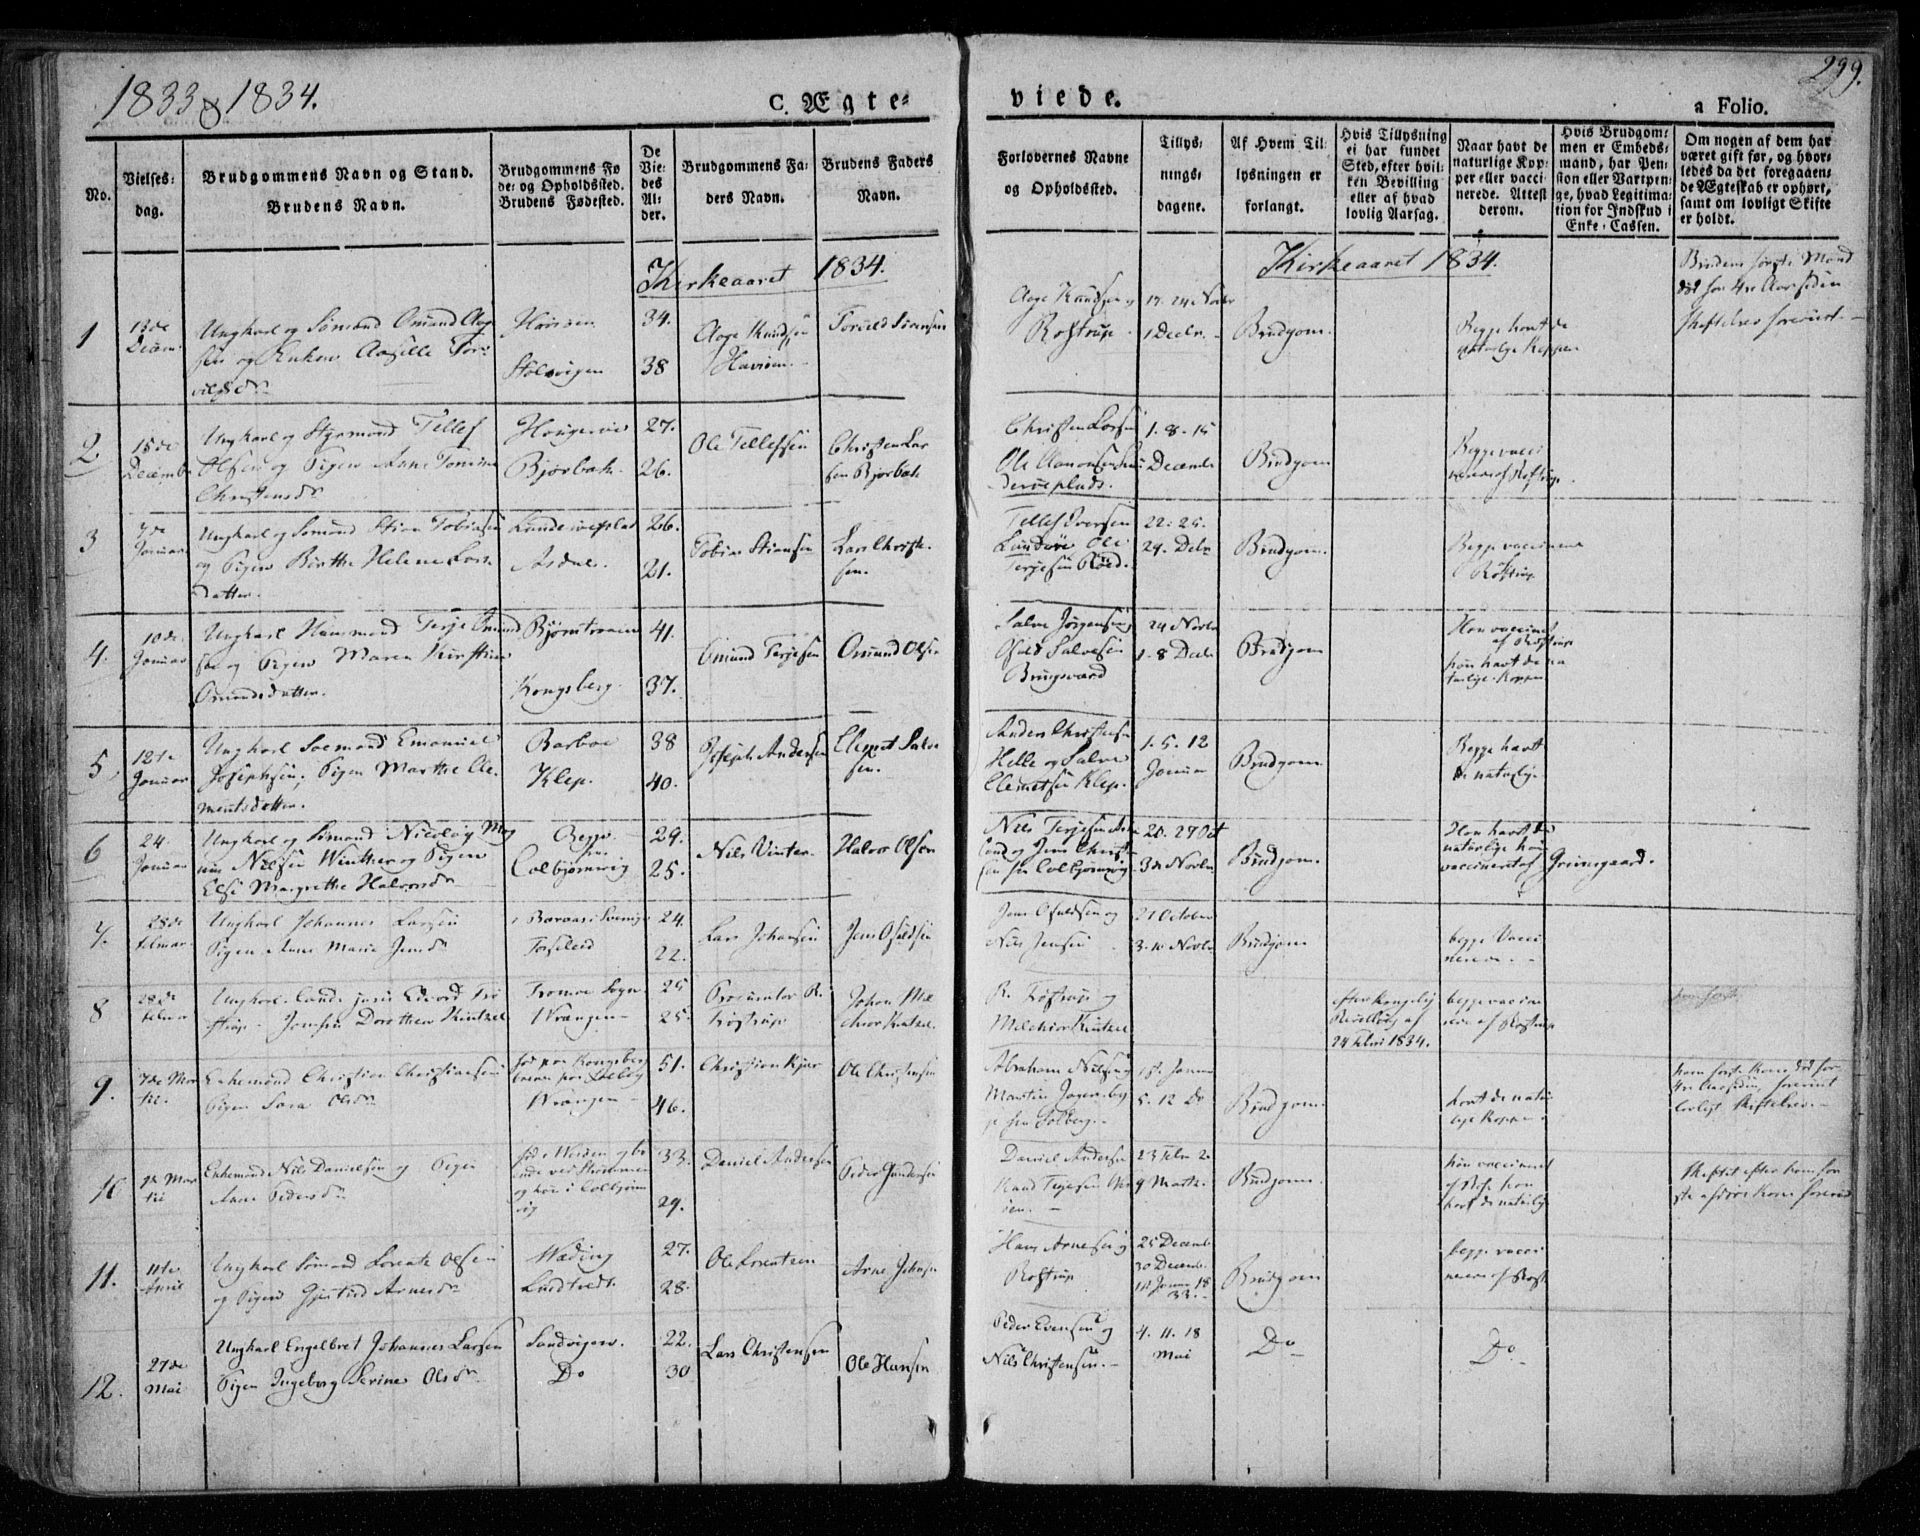 1833 & 1834.
C. Ægte-
viede.
299.
a Folio.
No.
Vielses-
dag.
Brudgommens Navn og Stand.
Brudens Navn.
Brudgommens Fø
de- og Opholdssted.
Brudens Fødested.
De
Vie-
des
Al-
der.
Brudgommens Fa-
ders Navn.
Brudens Faders
Navn.
Forlovernes Navne
og Opholdssted.
Tillys-
nings-
dagene.
Af Hvem Til-
lysningen er
forlangt.
Hvis Tillysning
ei har fundet
Sted, efter hvil-
ken Bevilling
eller af hvad
lovlig Aarsag.
Naar havt de
naturlige Kop-
per eller vacci-
nerede. Attest
derom.
Hvis Brudgom-
men er Embeds-
mand, har Pen-
sion eller Vartpen-
ge, hvad Legitima-
tion for Indskud i
Enke-Cassen.
Om nogen af dem har
været gift før, og hvor-
ledes da det foregaaen-
de Ægteskab er ophørt,
samt om lovligt Skifte
er holdt.
Kirkeaaret 1834.
Kirkeaaret 1834.
1
13de
Decem
Ungkarl og Sømand Omund Aag
sen og Enken Aasille Tor
vilsd
34.
Stølsvigen
38
Aage Knudsen
Torvild Sørensen
Aage Knudsen og
Rostrup.
17. 24 Novbr
1 Decbr.
Brudgom.
Begge havt de
naturlige Kopper
Brudens første Mand
død for 4re Aar siden
Skiftebrev foreviist.
2
15de
Decemb
Ungkarl og Styrmand Tellef
Olsen og Pigen Anne Tomine
Christensdr
27.
Bjorbæk
26.
Ole Tellefsen
Christen Lar
sen Bjorbæk
Christen Larsen
Ole Aanonsen
1. 8. 15
Decembr
Brudgom
Begge vacci
nerede af Rostrup.
3
7de
Januar
Ungkarl og Sømand Stian Tobiasen
og Pigen Birthe Helene Lars
datter.
26.
Asdal
21.
Tobias Stiansen
Lars Christ-
sen.
Tellef Iversen
Lundøe Ole
Terjesen Røed.
22. 25.
29. Debr
Brudgom.
Begge vaccinerede
Røstrup
4.
10de
Januar
Ungkarl Huusmand Terje Omund
sen og Pigen Maren Kirstine
Omundsdatter.
41.
Kongsberg.
37.
Omund Terjesen
Omund Olsen
Salve Jørgensen
Osuld Salvesen
Brugsvard
24 Novbr
1. 8 Decbr
Brudgom
Hon vaccineret
af Røstrup
han havt de na
turlige Kopper
5.
12te
Januar
Ungkarl Soemand Emanuel
Josephsen, Pigen Marthe Cle-
mentsdatter.
Barboe
38
Klep.
40.
Joseph Andersen
Clemet Salve
sen.
Anders Christensen
Helle og Salve
Clemetsen Klep.
1. 5. 12
Januar
Brudgom.
Begge havt
de naturlige
6
24.
Januar
Ungkarl og Sømand Nicolay Mag
nus Nilsen Winther og Pigen
Else Margrethe Halvorsdr
29.
Colbjørnsvig
25.
Nils Vinter.
Halvor Olsen
Nils Terjesen
land og Jens Christ-
jansen Colbjørnsvig
20. 27 Oct
3de Novbr
Brudgom.
Hon havt de
naturlige han
vaccineret af Grimsgaard.
7.
28de
Febuar
Ungkarl Johannes Larsen
Pigen Anne Marie Jensdr
24.
22.
Lars Johansen
Jens Osuldsen
Jens Osuldsen og
Nils Jensen
27 October
3. 10 Novbr
Brudgom
begge Vacci
nerede.
8
28de
Febuar
Ungkarl Cand. juris Edvard Rø
strup. Jomfru Dorothea Kintzel
Tromøe Sogn
25
Wrangen
25.
Procurator R.
Røstrup
Johan Mel
chior Kintzel.
R. Røstrup og
Melchior Kintzel
efter Kongelig
Bevilling af
24 Febri 1834.
begge vaccine
rede af Rostrup
9.
7de Mar
tii.
Enkemand Christian Christiansen
Pigen Sara Olsdr
51.
Wrangen
46.
Christian Kjær
Ole Christensen
Abraham Nilsen og
5. 12 Do
Brudgom.
havt de natur
lige Kopper
hans første Kone død for
4re Aar siden, foreviist
lovligt Skiftebrev.
10
Mar
tii
Enkemand Nils Danielsen og Pigen
Anne Pedersdr
33.
29.
Daniel Andersen
Peder Gundersen
Daniel Andersen
Knud Terjesen
23 Febr 2
9 Marts.
Brudgom.
hun vaccineret
af Rost. han
havt de naturlig
Skiftet efter hans før
ste afdøde Kone foreviist
11.
11te
April
Ungkarl Sømand Lorentz Olsen
og Pigen Gjertud Arnesdr
Næding
27.
Lindtvedt.
28.
Ole Lorentzen
Arne Johnsen
Hans Arnesen og
Rostrup
25 Decemb
30 Decemb.
1st Januar 18
33.
Brudgom
begge vacci
nerede af Rost.
12.
27de
Mai
Ungkarl Engelbret Johannes Larsen
Pigen Ingeborg Serine Olsdr
Sandvigen.
22.
Do
30
Lars Christensen
Ole Hansen
Peder Evensen og
Nils Christensen.
4. 11. 18
Mai
Do
Do